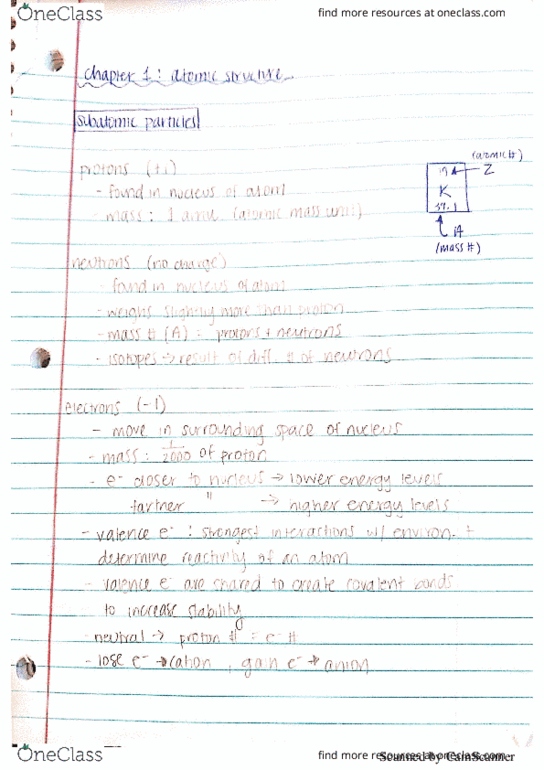 OneClass
find more resources at oneclass.com
chapter 1 : atomic structure
subatomic particles
protons (+1)
- found in nucleus of atom
- mass : 1 amu (atomic mass unit)
(atomic #)
19 ← Z
K
39.1
A
(mass #)
neutrons (no charge)
- found in nucleus of atom
- weighs slightly more than proton
- mass # (A) = protons + neutrons
- isotopes → result of diff. # of neutrons
electrons (-1)
- move in surrounding space of nucleus
- mass : 1/2000 of proton
- e⁻ closer to nucleus → lower energy levels
farther " → higher energy levels
- valence e⁻ : strongest interactions w/ environ. +
determine reactivity of an atom
- valence e⁻ are shared to create covalent bonds
to increase stability
- neutral → proton # = e⁻ #
- lose e⁻ → cation , gain e⁻ → anion
OneClass
find more resources at oneclass.com
Scanned by CamScanner